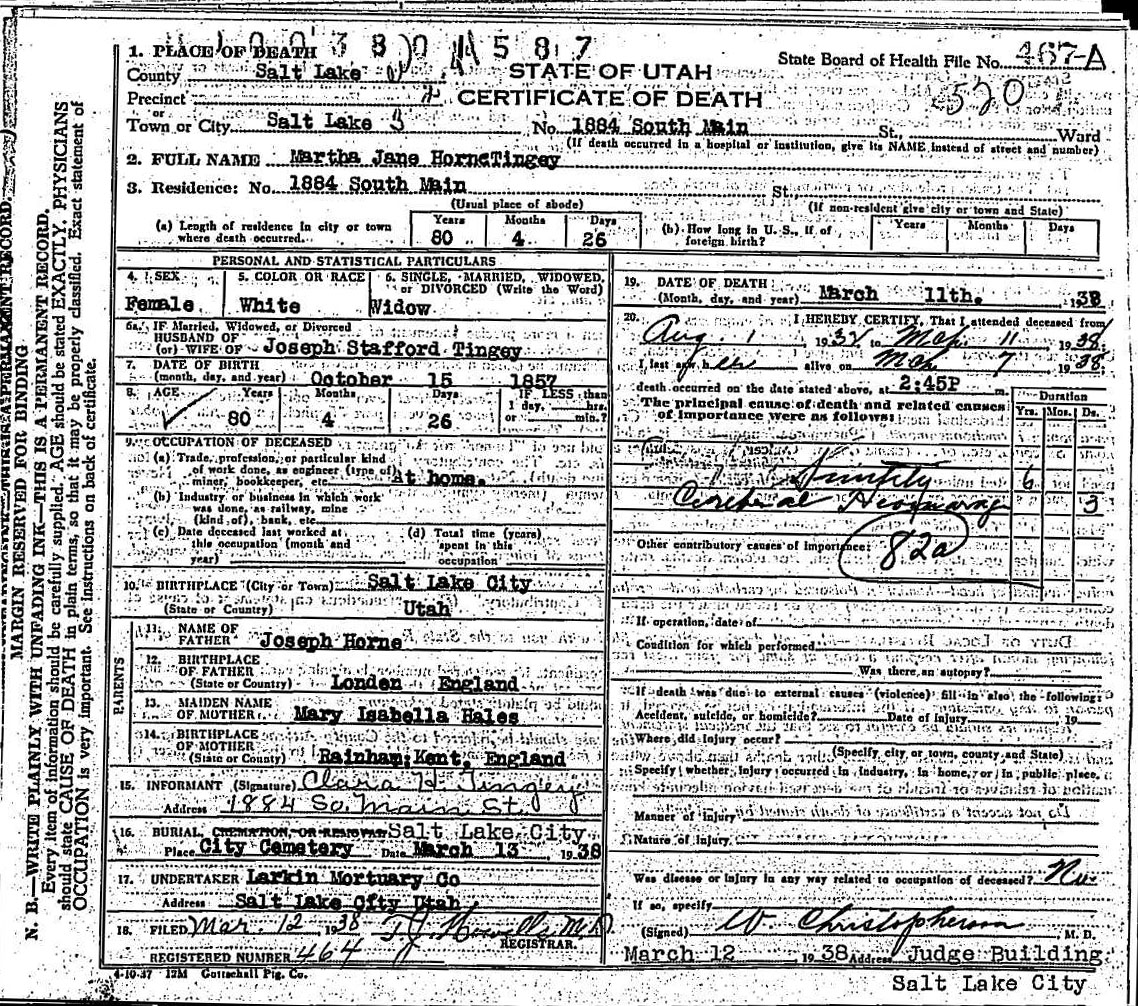 1. PLACE OF DEATH
County Salt Lake
STATE OF UTAH
State Board of Health File No. 467-A
Precinct
CERTIFICATE OF DEATH
520
or
Town or City Salt Lake 3 No. 1884 South Main St., Ward
(If death occurred in a hospital or institution, give its NAME instead of street and number)
2. FULL NAME Martha Jane HorneTingey
3. Residence: No. 1884 South Main St.
(Usual place of abode)
(If non-resident give city or town and State)
(a) Length of residence in city or town where death occurred. Years 80 Months 4 Days 26
(b) How long in U. S., if of foreign birth? Years Months Days
PERSONAL AND STATISTICAL PARTICULARS
4. SEX Female
5. COLOR OR RACE White
6. SINGLE, MARRIED, WIDOWED, or DIVORCED (Write the Word) Widow
6a. IF Married, Widowed, or Divorced
HUSBAND OF
(or) WIFE OF Joseph Stafford Tingey
7. DATE OF BIRTH
(month, day, and year) October 15 1857
8. AGE Years 80 Months 4 Days 26 IF LESS than 1 day, hrs. or min.
9. OCCUPATION OF DECEASED
(a) Trade, profession, or particular kind
of work done, as engineer (type of)
miner, bookkeeper, etc. At home.
(b) Industry or business in which work
was done, as railway, mine
(kind of), bank, etc.
(c) Date deceased last worked at
this occupation (month and
year)
(d) Total time (years)
spent in this
occupation
10. BIRTHPLACE (City or Town) Salt Lake City
(State or Country) Utah
PARENTS
11. NAME OF
FATHER Joseph Horne
12. BIRTHPLACE
OF FATHER
(State or Country) Londen England
13. MAIDEN NAME
OF MOTHER Mary Isabella Hales
14. BIRTHPLACE
OF MOTHER
(State or Country) Rainham, Kent, England
15. INFORMANT (Signature) Clara H. Tingey
Address 1884 So. Main St.
16. BURIAL, CREMATION, OR REMOVAL Salt Lake City
Place City Cemetery Date March 13, 1938
17. UNDERTAKER Larkin Mortuary Co
Address Salt Lake City Utah
18. FILED Mar. 12 1938 T.J. Howells M.D.
REGISTRAR.
REGISTERED NUMBER 464
19. DATE OF DEATH
(Month, day, and year) March 11th. 1938
20. I HEREBY CERTIFY, That I attended deceased from
Aug. 1 1937 to Mch. 11 1938
I last saw her alive on Mch 7 1938
death occurred on the date stated above, at 2:45P m.
The principal cause of death and related causes
of importance were as follows:
Duration
Yrs. Mos. Ds.
Senility 6
Cerebral Hemorrhage 3
Other contributory causes of importance:
82a
If operation, date of
Condition for which performed
Was there an autopsy?
If death was due to external causes (violence) fill in also the following:
Accident, suicide, or homicide? Date of Injury 19
Where did injury occur?
(Specify city, or town, county, and State)
Specify whether injury occurred in industry, in home, or in public place.
Manner of injury
Nature of injury
Was disease or injury in any way related to occupation of deceased? No.
If so, specify
(Signed) W Christopherson M. D.
March 12 1938 Address Judge Building
Salt Lake City
4-10-37 12M Gottschall Ptg. Co.
MARGIN RESERVED FOR BINDING
N. B.—WRITE PLAINLY WITH UNFADING INK—THIS IS A PERMANENT RECORD.
Every item of information should be carefully supplied. AGE should be stated EXACTLY. PHYSICIANS
should state CAUSE OF DEATH in plain terms, so that it may be properly classified. Exact statement of
OCCUPATION is very important. See instructions on back of certificate.